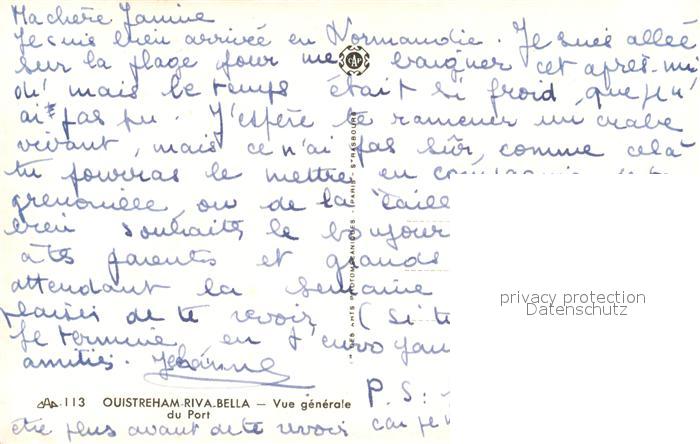 Ma chère Janine
Je suis bien arrivée en Normandie. Je suis allée
sur la plage pour me baigner cet après-mi
di mais le temps était si froid que je n'
ai pas pu. J'espère te ramener un crabe
vivant, mais ce n'ai pas sûr, comme celà
tu pourras le mettre en compagnie
grenouille, ou de la taille
bien souhaits le bonjour
à tes parents et grands
attendant la semaine
plaisir de te revoir (si t
Je termine en t'envoyan
amitiés. Jehanne
P.S:
être plus avant de te revoir car je
CAP 113 OUISTREHAM-RIVA.BELLA — Vue générale
du Port
CAP
"LES ARTS PHOTOMÉCANIQUES" - PARIS - STRASBOURG
privacy protection
Datenschutz